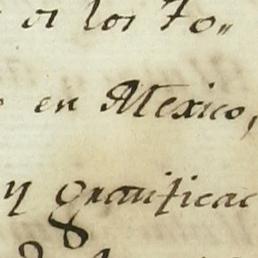 de los Fo„
en Mexico,
y gratificac